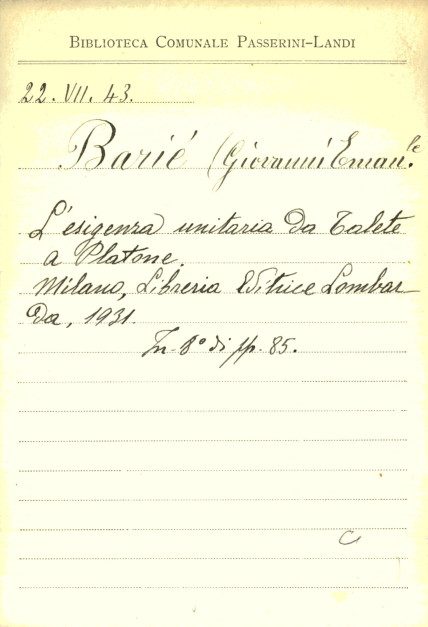 BIBLIOTECA COMUNALE PASSERINI-LANDI
22. VII. 43.
Barié (Giovanni Eman.le
L'esigenza unitaria da Talete
a Platone.
Milano, Libreria Editrice Lombar
da, 1931.
In-8° di pp. 85.
C